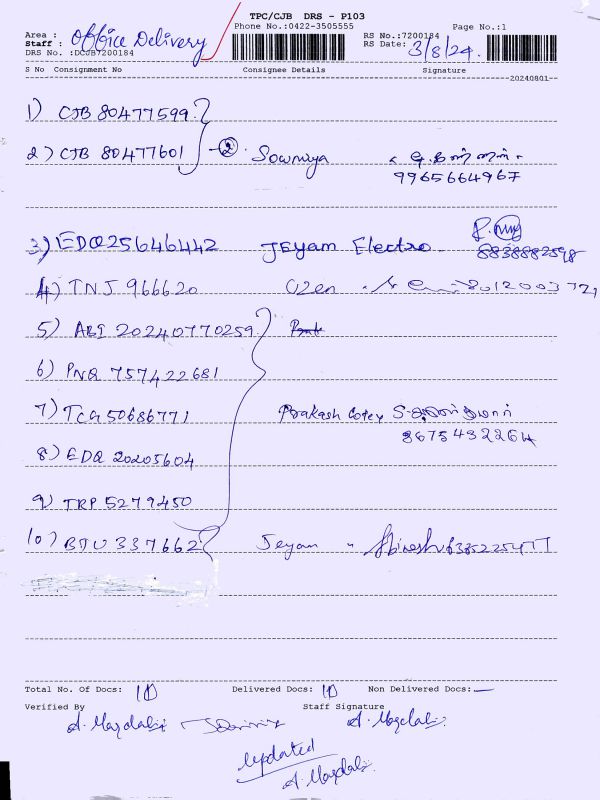 TPC/CJB DRS - P103
Phone No.:0422-3505555
Page No.:1
Area :
Staff : Office Delivery
RS No.:7200184
RS Date: 3/8/24
DRS No. :DCJB7200184
S No Consignment No Consignee Details Signature
20240801
1) CJB 80477599
2) CJB 80477601 - 2 Sowmiya
9965664967
3) EDQ25646442 Jeyam Electro
8838882598
4) TNJ 966620
5) ABI 20240770259
6) PNQ 757422681
7) TCG 50686771 Prakash
8675432264
8) EDQ 20205604
9) TRP 5279450
10) BTU 337662 Jeyam "
Total No. Of Docs: 10 Delivered Docs: 10 Non Delivered Docs: —
Verified By Staff Signature
Updated